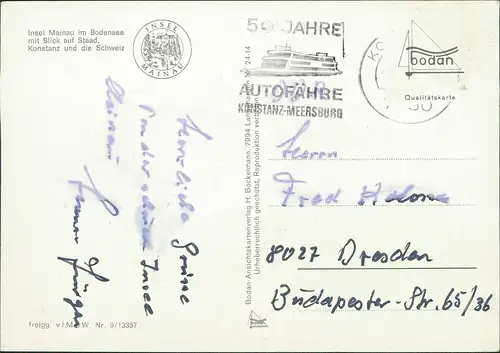 Insel Mainau im Bodensee
mit Blick auf Staad,
Konstanz und die Schweiz
INSEL
MAINAU
50 JAHRE
AUTOFÄHRE
KONSTANZ-MEERSBURG
bodan
Qualitätskarte
Herzliche Grüsse
von der schönen Insel
Mainau
Bodan-Ansichtskartenverlag H. Bockermann, 7994 Langenargen Nr. 24-14
Urheberrechtlich geschützt, Reproduktion verboten
Herrn
Fred
8027 Dresden
Budapester-Str. 65/36
bodan
freigg. v.I.M.B.W. Nr. 9/13357